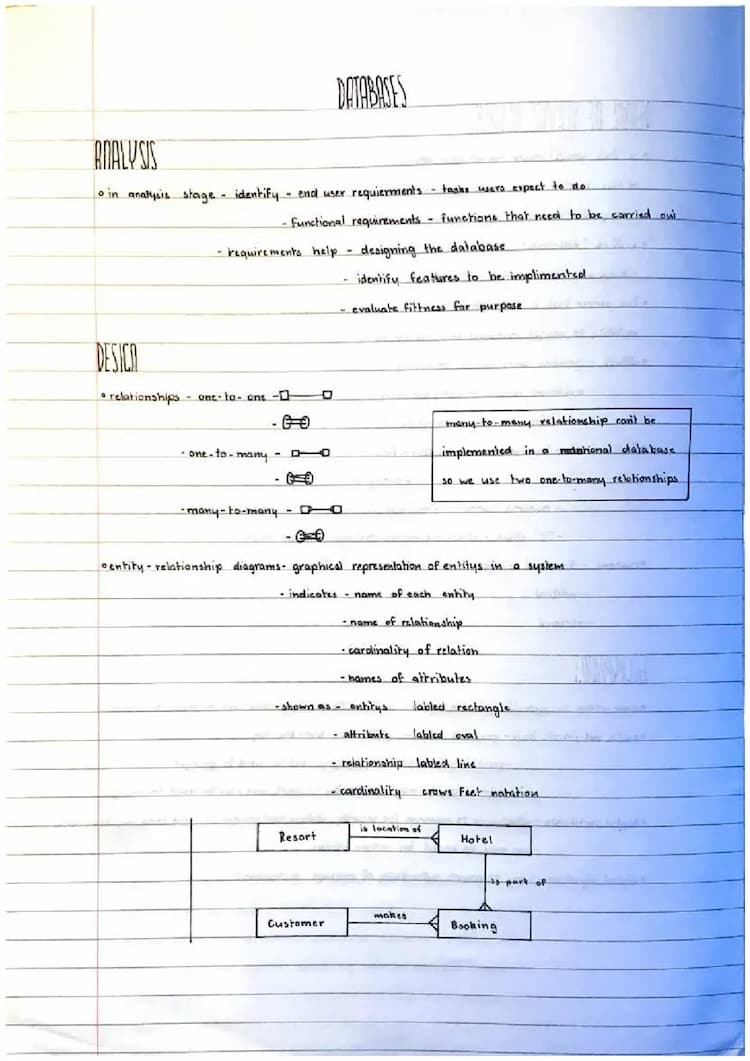 DATABASES
ANALYSIS
in analysis stage - identify - end user requierments - tasks users expect to do
- functional requirements - functions that need to be carried out
- requirements help - designing the database
- identify features to be implimented
- evaluate fittness for purpose
DESIGN
relationships - one-to-one -
- one-to-many -
- many-to-many -
many-to-many relationship can't be
implemented in a relational database
so we use two one-to-many relationships
entity-relationship diagrams - graphical representation of entitys in a system
- indicates - name of each entity
- name of relationship
- cardinality of relation
- names of attributes
- shown as - entitys labled rectangle
- attribute labled oval
- relationship labled line
- cardinality crows feet notation
Resort is location of Hotel
is part of
Customer makes Booking